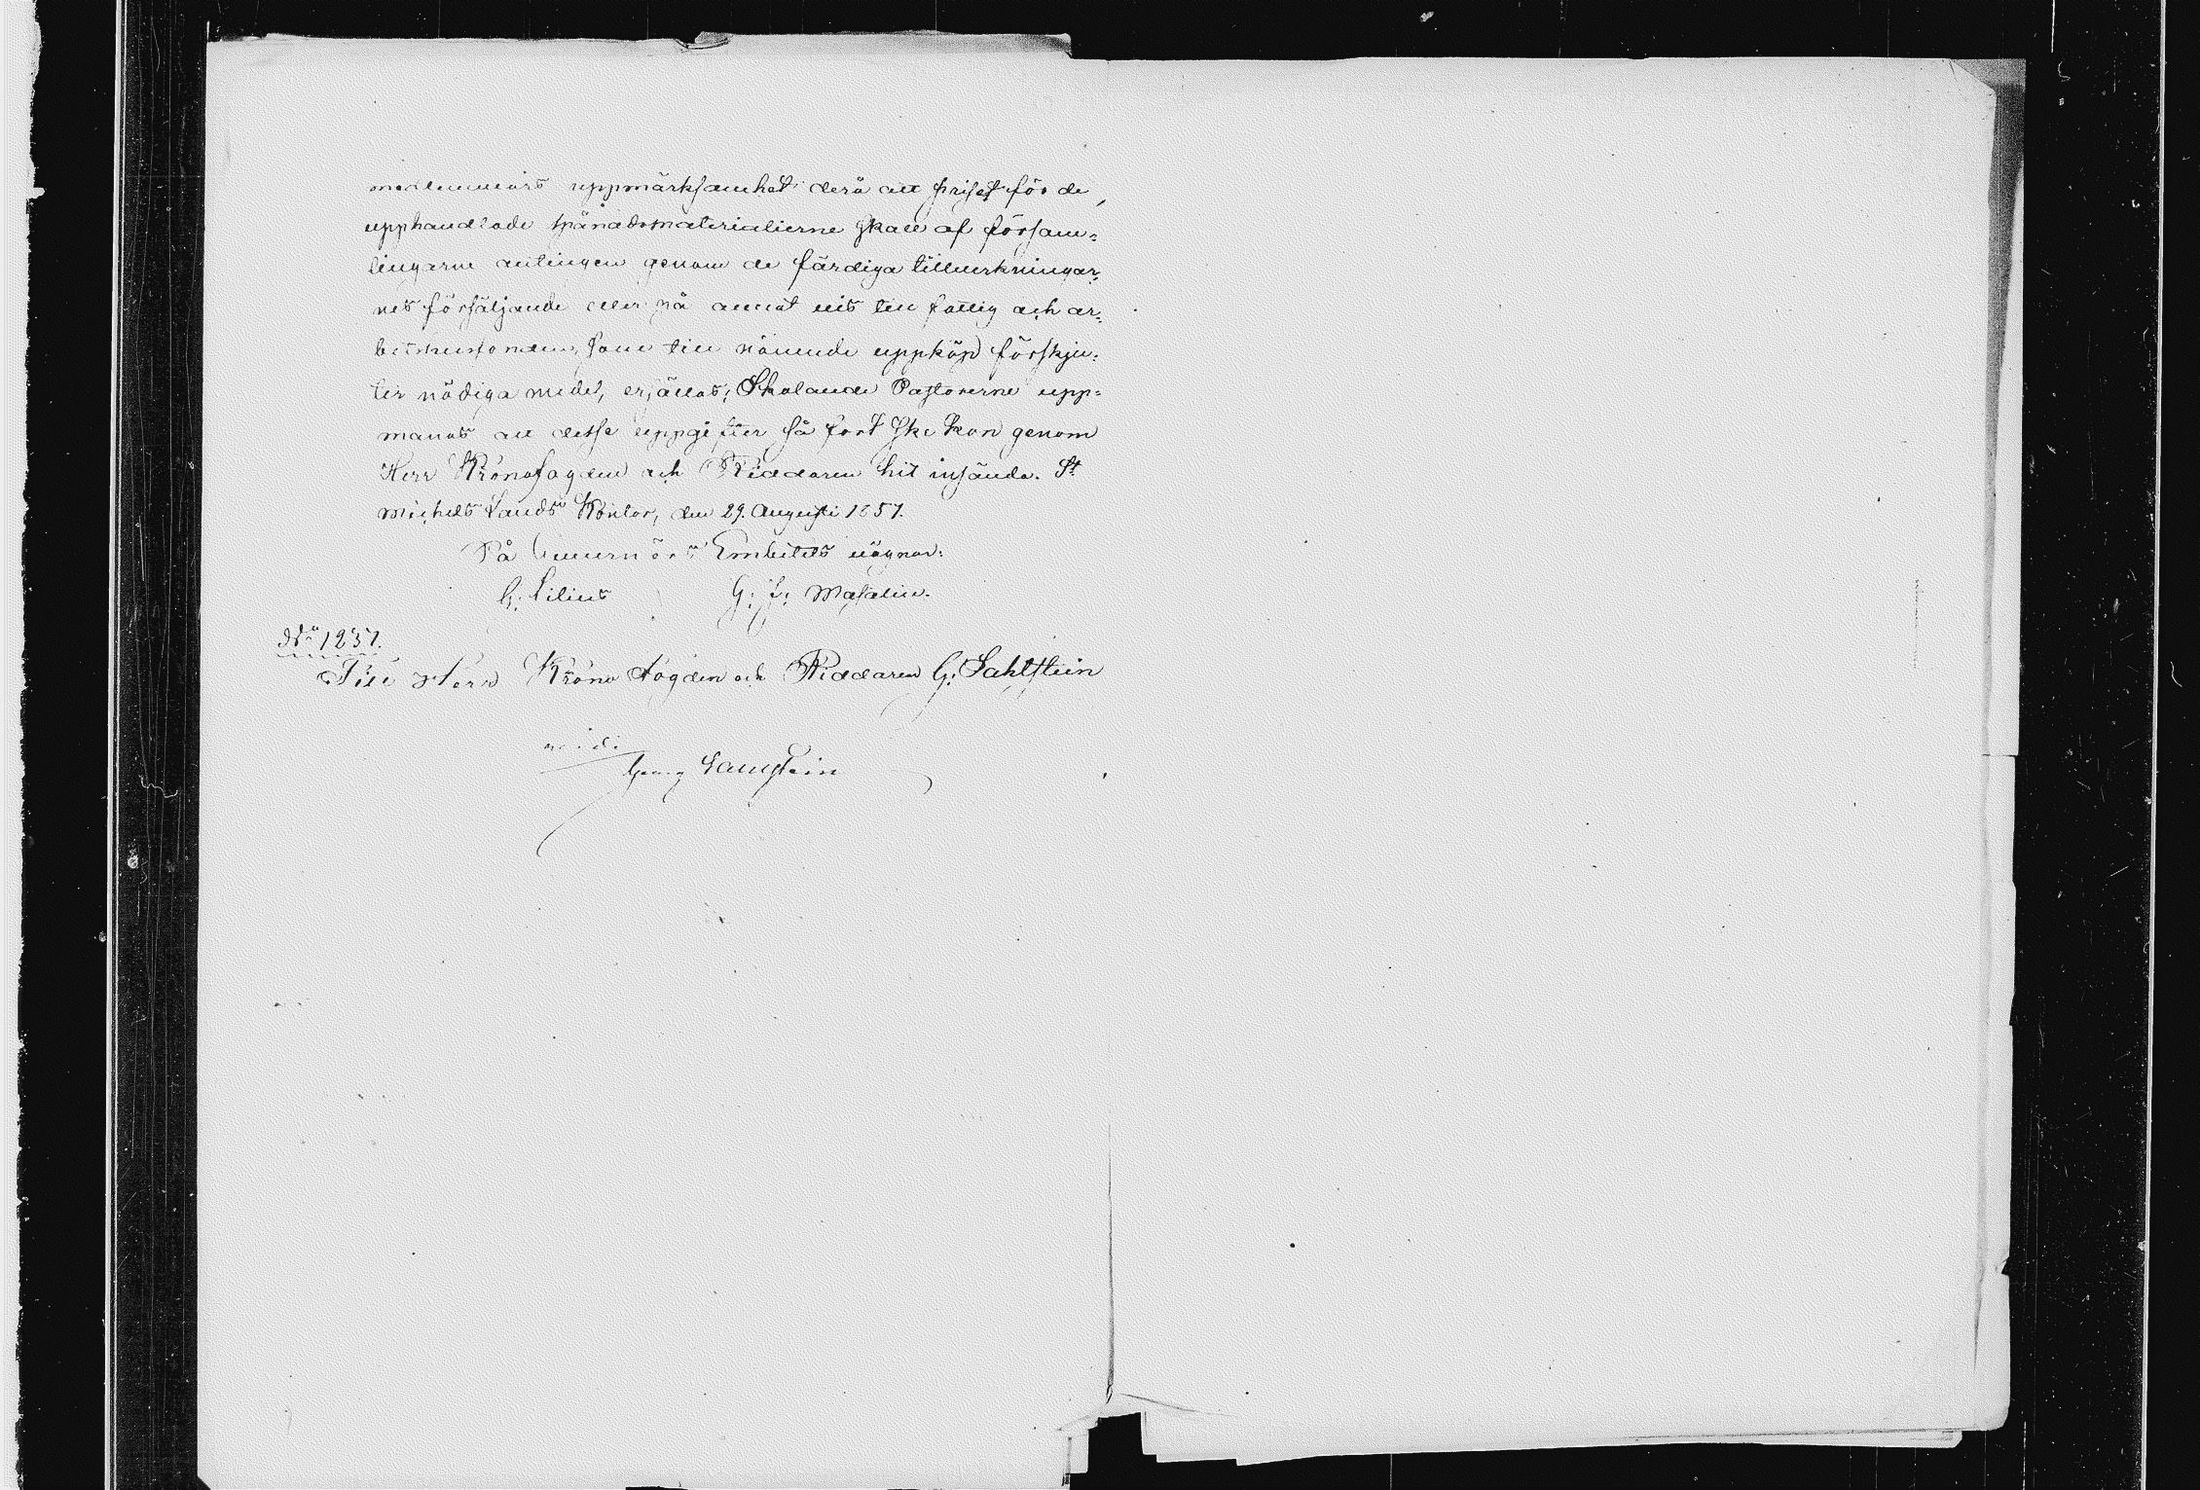 medlemmars uppmärksamhet derå att priset för de
upphandlade spånadsmaterialierne skall af försam=
lingarne antingen genom de färdiga tillverkningar=
nes försäljande eller på annat vis till fattig och ar=
betshusfonden, som till nämnde uppköp förskju=
ter nödiga medel, ersättas; Skolande Pastorerne upp=
manas att desse uppgifter så fort ske kan genom
Herr Kronofogden och Riddaren hit insända. St
Michels Lands Kontor, den 29. Augusti 1857.
På Guvernörs Embetets vägnar:
G: Silius G: F: Masalin.
No 1237.
Till Herr Krono Fogden och Riddaren G: Sahlstein
Georg Sahlstein